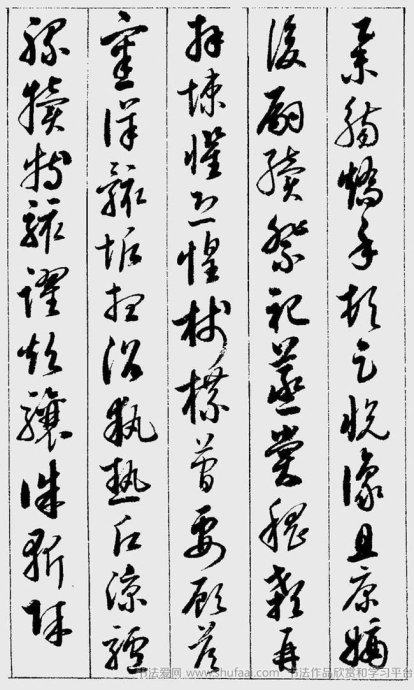 舉觴矯手頓足悅豫且康嫡
後嗣續祭祀蒸嘗稽顙再
拜悚懼恐惶牋牒簡要顧答
審詳骸垢想浴執熱願涼驢
騾犢特駭躍超驤誅斬賊
书法爱网 www.shufaai.com 书法作品欣赏和学习平台